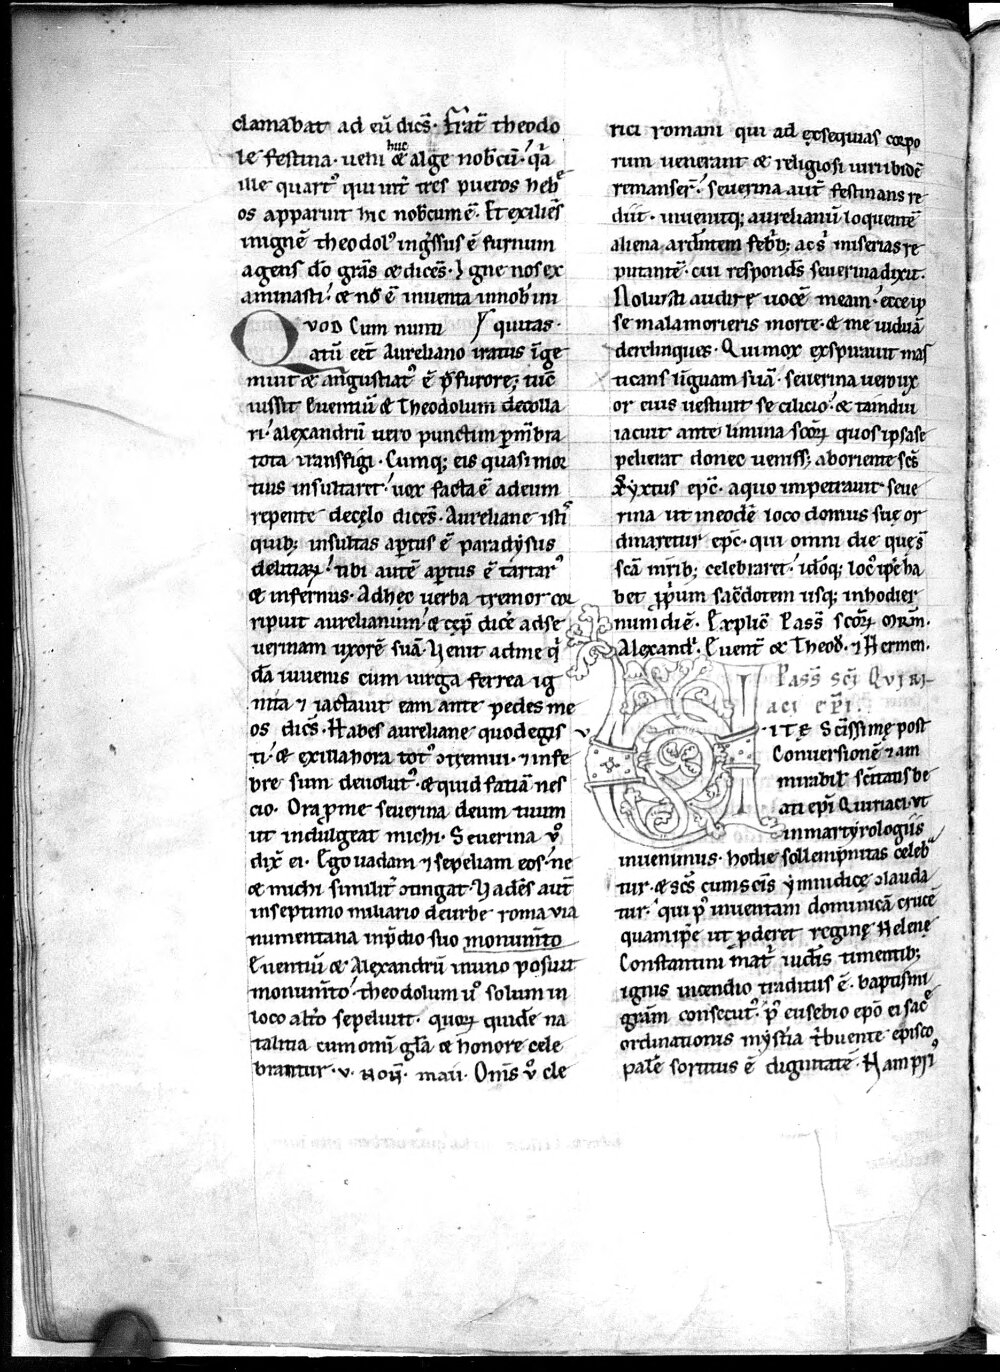 clamabat ad eū dicēs. Frat̄ theodo
le festina. ueni huc & alge nobcū. q̄a
ille quart᾽ qui int̄ tres pueros heb᾽
os apparuit hic nobcum ē. Et exiliēs
inignē theodol᾽ ingssus ē furnum
agens dō grās & dicēs. Igne nos ex
aminasti. & nō ē inuenta innob ini
QVOD Cum nuntı quitas.
atū eēt Aureliano iratus īge
muit & angustiat᾽ ē p̄ furore; tūc
iussit Euentiū & Theodolum decolla
ri. alexandrū uero punctim p mēbra
tota transfigi. Cumq; eis quasi mor
tuis insultaret. uox facta ē adeum
repente decęlo dicēs. Aureliane isti᾽
quib; insultas apt᾽us ē paradysus
delitiaꝝ. tibi autē aptus ē tartar᾽
& infernus. Adhęc uerba tremor cor
ripuit aurelianum. & cęp̄ dicē adse
uerinam uxorē suā. Uenit adme q᾽
dā iuuenis cum uirga ferrea ig
nita ⁊ iactauit eam ante pedes me
os dicēs. Habes aureliane quod egis
ti. & exilla hora tot᾽ ↄtremui. ⁊ infe
bre sum deuolut᾽. & quid fatiā nes
cio. Ora p me seuerina deum tuum
ut indulgeat michi. Seuerina v᾽
dix̄ ei. Ego uadam ⁊ sepeliam eos. ne
& michi similit̄ ↄtingat. Uadēs aut̄
inseptimo miliario deurbe roma uia
numentana inp̄dio suo monumto
Euentiū & Alexandrū inuno posuit
monumto. theodolum u᾽ solum in
loco altō sepeliuit. quoꝝ quidē na
talitia cum omi gla & honore cele
brantur. v. Non̄. maii. Omīs v᾽ cle
rici romani qui ad exsequias corpo
rum uenerant & religiosi uiri bidē
remanser̄. seuerina aut̄ festinans re
diit. inuenitq; aurelianū loquentē
aliena ardentem febb; ac s᾽ miserias re
putantē. cui respondēs seuerina dixit.
Noluisti audire uocē meam. ecce ip
se mala morieris morte. & me uiduā
derelinques. Qui mox exspirauit mas
ticans linguam suā. seuerina uero ux
or eius uestiuit se cilicio. & tamdiu
iacuit ante limina scōꝝ quos ipsa se
pelierat donec uenisse; aboriente scs̄
Xyxtus epc̄. a quo impetrauit seue
rina ut ineodē loco domus suę or
dinaretur epc̄. qui omni die quęs̄
scā mr̄ib; celebraret. idōq; loc᾽ ip̄e ha
bet p̄pum sacēdotem usq; inhodier
num diē. Explic̄ Pass̄ scōꝝ mrm̄.
Alexandr̄. Euent̄ & Theod. ⁊ Hermen.
Pass̄ sc̄i QVIRI-
aci ep̄i.
ITE Sc̄issimę post
Conuersionē ⁊ am
mirabil᾽ sc̄itatis be
ati ep̄i Quiriaci. ut
inmartyrologiis
inuenimus. hodie sollempnitas celeb᾽
tur. & scs̄ cum scīs ymnidicę ↄlauda
tur. qui p᾽ inuentam dominicā crucē
quam ip̄e ut pderet reginę Helenę
Constantini mat̄ iudēis timentib;
ignis incendio traditus ē. baptismi
grām consecut᾽. p̄ eusebio epō ei sac᾽
ordinationis mystīa t᾽buente episco
palē sortitus ē dignitatē. Nam pri᾽